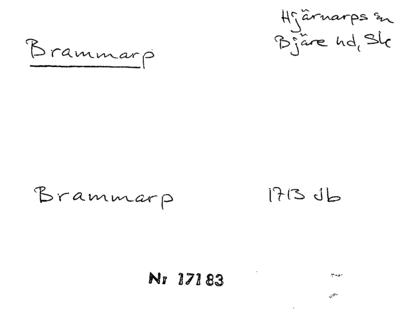 Brammarp
Hjärnarps sn
Bjäre hd, Sk
Brammarp 1713 Jb
Nr 17183